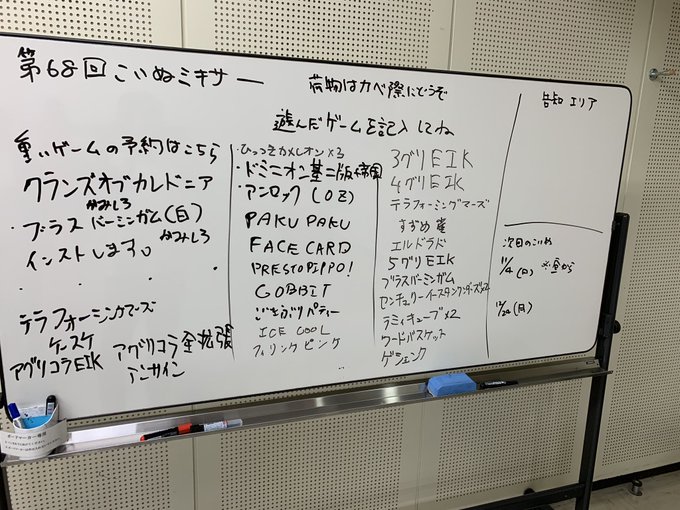 第68回こいぬミキサー
荷物はカベ際にどうぞ
遊んだゲームを記入してね
告知エリア
重いゲームの予約はこちら
クランズオブカレドニア
かみしろ
・ブラスバーミンガム(白)
インストします。かみしろ
テラフォーミングマーズ
ケースケ
アグリコラEIK
アグリコラ全拡張
・ひっつきカメレオン×3
・ドミニオン基二版+帝国
・アンロック(OZ)
PAKU PAKU
FACE CARD
PRESTOPIPPO!
GOBBIT
ごきぶりパティー
ICE COOL
フィリンクピンク
3グリEIK
4グリEIK
テラフォーミングマーズ
すずめ雀
エルドラド
5グリEIK
ブラスバーミンガム
センチュリーイースタンワンダーズ×2
ラミィキューブ×2
ワードバスケット
ゲシェンク
次回のこいぬ
11/4(日) ※昼から
12/24(月)